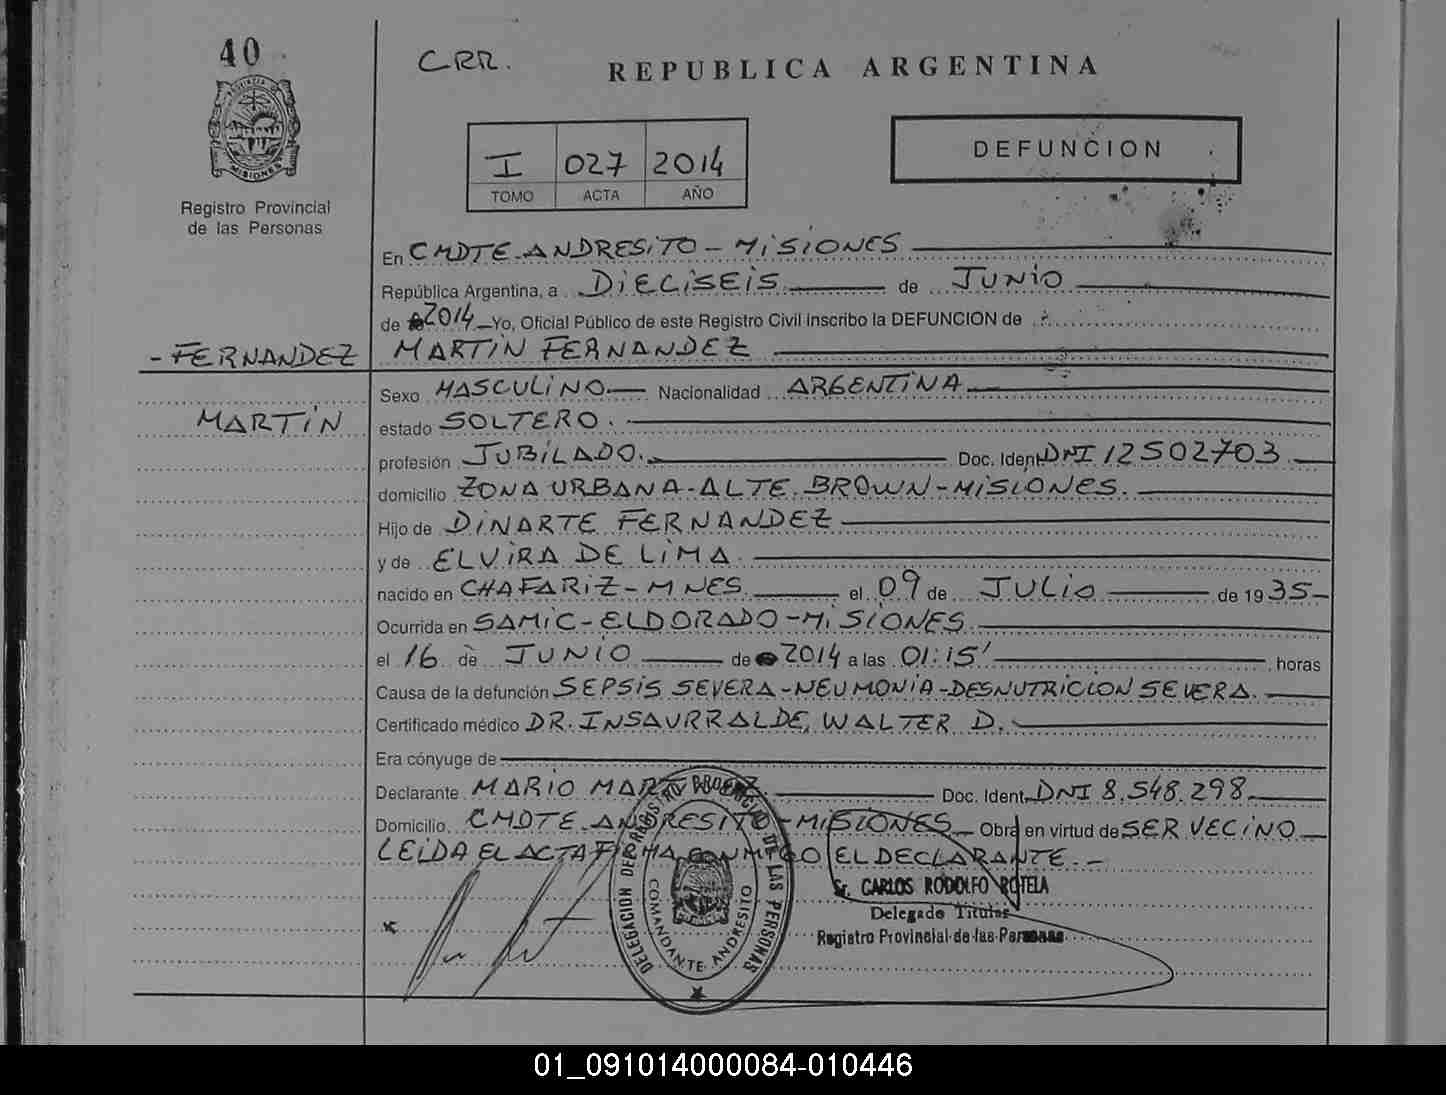 40
CRR.
REPUBLICA ARGENTINA
PROVINCIA DE
MISIONES
Registro Provincial
de las Personas
I 027 2014
TOMO ACTA AÑO
DEFUNCION
En CMDTE ANDRESITO - MISIONES
República Argentina, a DIECISEIS de JUNIO
de 2014 Yo, Oficial Público de este Registro Civil inscribo la DEFUNCION de
- FERNANDEZ MARTIN FERNANDEZ
Sexo MASCULINO Nacionalidad ARGENTINA
MARTIN
estado SOLTERO.
profesión JUBILADO. Doc. Ident. DNI 12502703
domicilio ZONA URBANA - ALTE. BROWN - MISIONES.
Hijo de DINARTE FERNANDEZ
y de ELVIRA DE LIMA
nacido en CHAFARIZ - MNES el 09 de JULIO de 1935
Ocurrida en SAMIC - ELDORADO - MISIONES
el 16 de JUNIO de 2014 a las 01:15' horas
Causa de la defunción SEPSIS SEVERA - NEUMONIA - DESNUTRICION SEVERA.
Certificado médico DR. INSAURRALDE, WALTER D.
Era cónyuge de
Declarante MARIO Doc. Ident. DNI 8.548.298
Domicilio CMDTE ANDRESITO - MISIONES Obra en virtud de SER VECINO
LEIDA EL ACTA FIRMA CONMIGO EL DECLARANTE. -
Sr. CARLOS RODOLFO ROTELA
Delegado Titular
Registro Provincial de las Personas
DELEGACION DEL REGISTRO PROVINCIAL DE LAS PERSONAS
COMANDANTE ANDRESITO
01_091014000084-010446